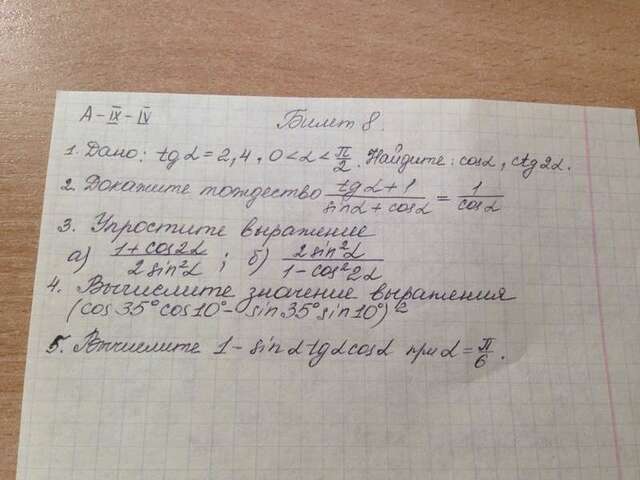 А-IX-IV
Билет 8.
1. Дано: tgα = 2,4, 0<α<π/2. Найдите: cosα, ctg2α.
2. Докажите тождество (tgα+1)/(sinα+cosα) = 1/cosα
3. Упростите выражение
а) (1+cos2α)/(2sin²α) ; б) (2sin²α)/(1-cos²2α)
4. Вычислите значение выражения
(cos35°cos10°-sin35°sin10°)²
5. Вычислите 1-sinαtgαcosα при α=π/6.